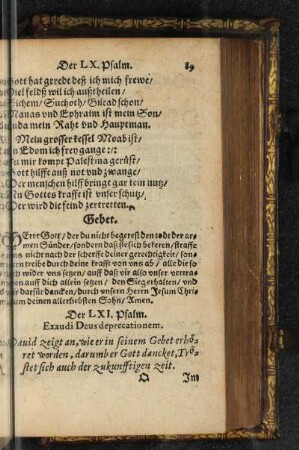 Der LX. Psalm. 89
Gott hat geredt deß ich mich frewe/
Viel feldß wil ich außtheilen/
Sichem/ Suchoth/ Gilead schon/
Manas vnd Ephraim ist mein Son/
Juda mein Raht vnd Hauptman.
Mein grosser kessel Moab ist/
in Edom ich frey gange :|:
zu mir kompt Palestina gerüst/
Gott hilfft auß not vnd zwange/
Der menschen hilff bringt gar kein nutz/
In Gottes krafft ist vnser schutz/
Der wird die feind zertretten.
Gebet.
HErre Gott/ der du nicht begerest den todt der ar-
men Sünder/ sondern daß sie sich bekeren/ straffe
vns nicht nach der scherffe deiner gerechtigkeit/ son-
dern treibe durch deine krafft von vns ab/ alle die so
sich wider vns setzen/ auff daß wir also vnser vertra-
wen auff dich allein setzen/ den Sieg erhalten/ vnd
wir dafür dancken/ durch vnsern Herrn Jesum Chri-
stum deinen allerliebsten Sohn/ Amen.
Der LXI. Psalm.
Exaudi Deus deprecationem.
Dauid zeigt an, wie er in seinem Gebet erhö-
ret worden, darumb er Gott dancket, Trö-
stet sich auch der zukunfftigen zeit.
Q Im